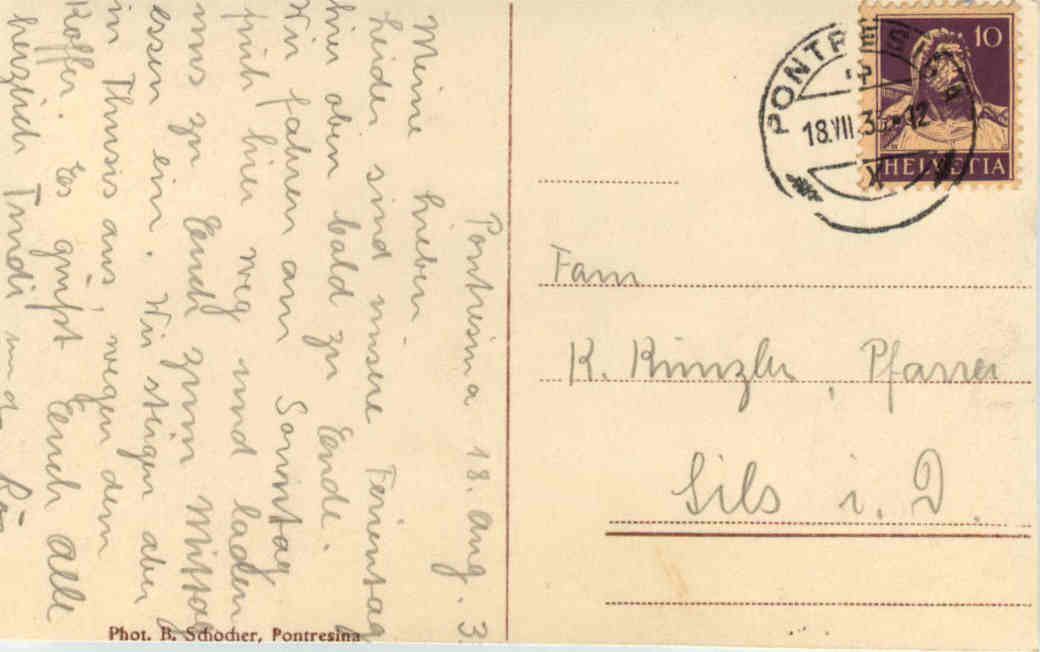 Pontresina 18. Aug. 3
Meine Lieben
Leider sind unsere Ferientag
hier oben bald zu Ende.
Wir fahren am Sonntag
früh hier weg und laden
uns zu Euch zum Mittag
essen ein. Wir steigen aber
in Thusis aus, wegen dem
Koffer. Es grüsst Euch alle
herzlich Trudi und
Phot. B. Schocher, Pontresina
PONTRESINA
18.VII.35-12
X
10
HELVETIA
Fam
K. Künzler, Pfarrer
Sils i. D.